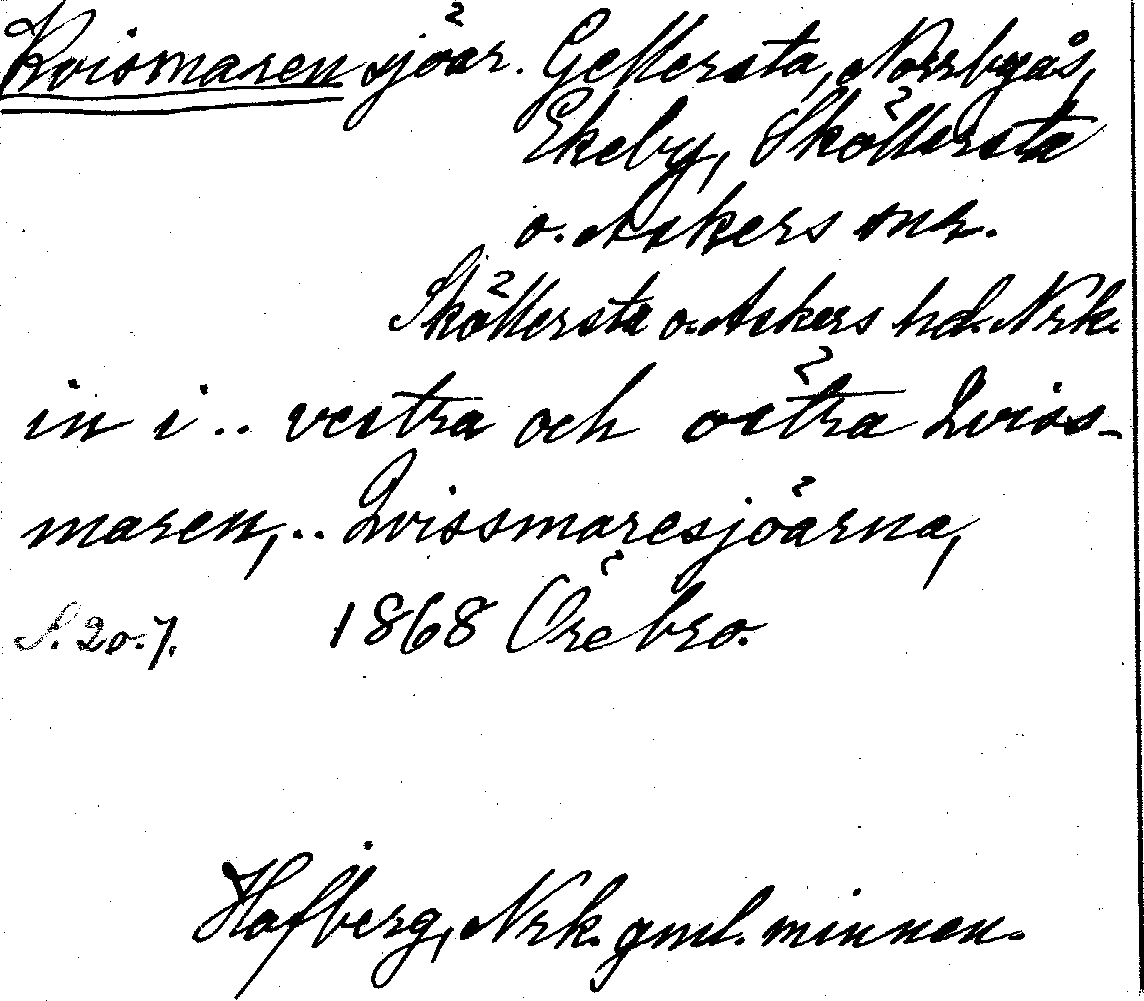 Kvismaren sjöar. Gellersta, Norrbyås,
Ekeby, Sköllersta
o. Askers snr.
Sköllersta o. Askers hd. Nrk.
in i .. vestra och östra Qviss-
maren, .. Qvissmaresjöarna,
S. 20.7. 1868 Örebro.
Hofberg, Nrk. gml. minnen.